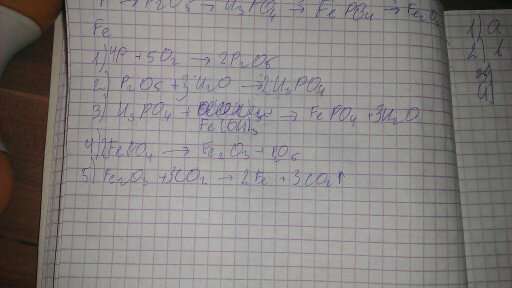 P → P2O5 → H3PO4 → FePO4 → Fe2O3
Fe
1) 4P + 5O2 → 2P2O5
2) P2O5 + 3H2O → 2H3PO4
3) H3PO4 + Fe(OH)3 → FePO4 + 3H2O
4) 2FePO4 → Fe2O3 +
5) Fe2O3 + 3CO2 → 2Fe + 3CO2↑
1) a
2)
3)
4)